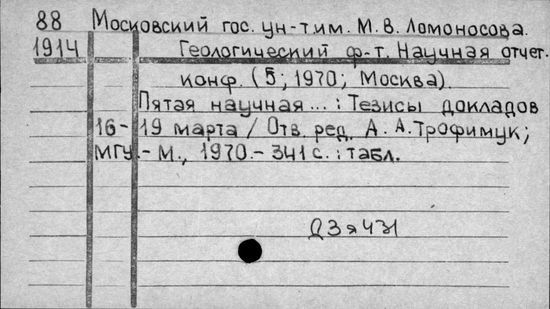 88 Московский гос. ун-т им. М. В. Ломоносова.
1914 Геологический ф-т. Научная отчет.
конф. (5; 1970; Москва).
Пятая научная ... : Тезисы докладов
16-19 марта / Отв. ред. А. А. Трофимук;
МГУ. - М., 1970. - 341 с. : табл.
Д3я431